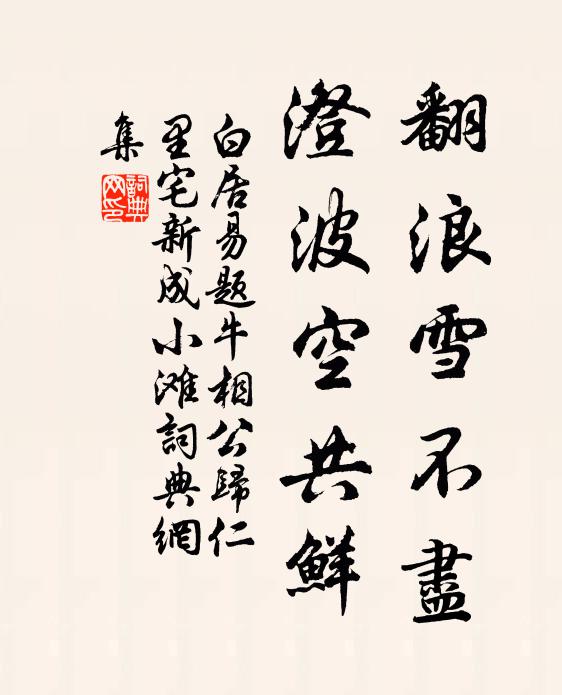 翻浪雪不盡
澄波空共鮮
白居易题牛相公歸仁
里宅新成小滩詞典網
集
詞典
网印